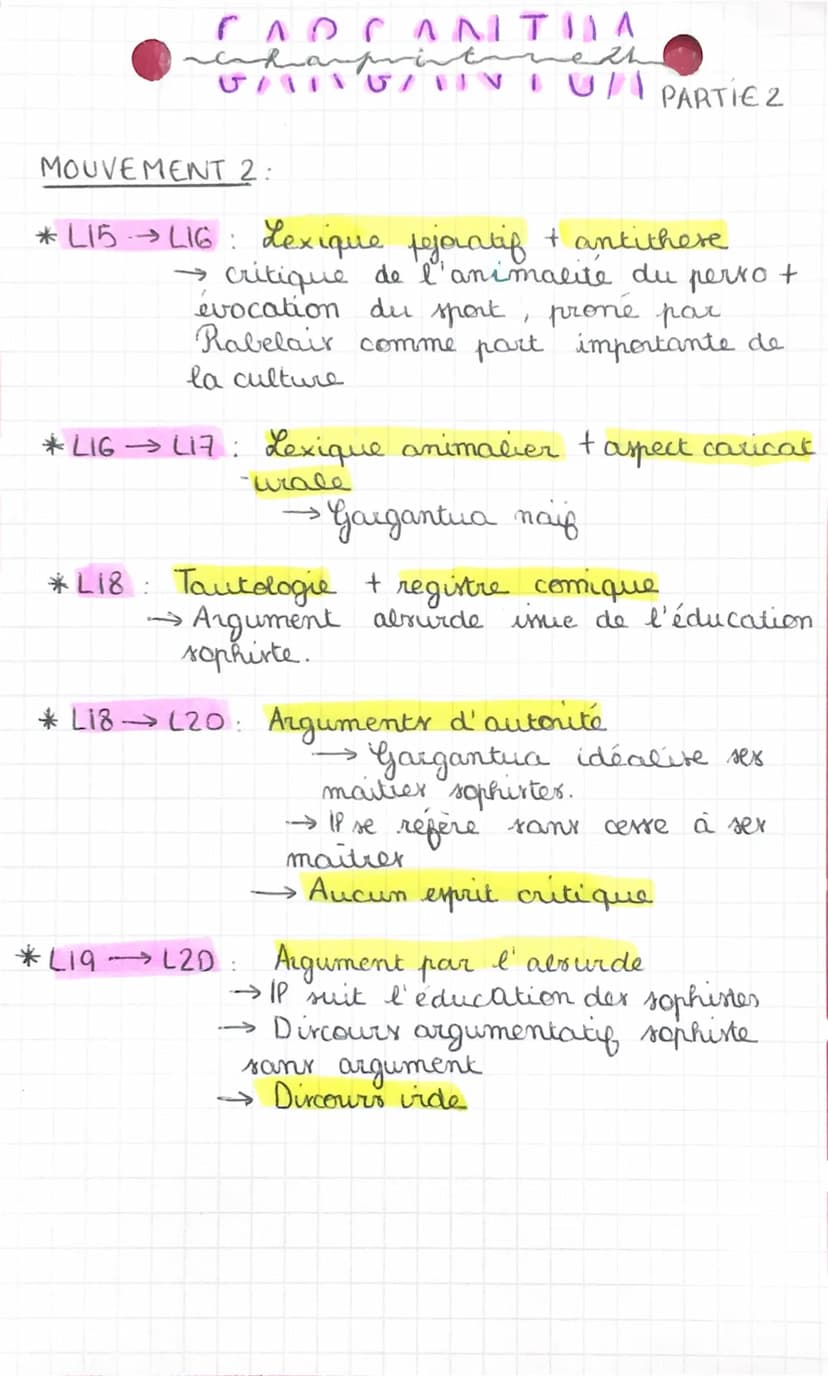 GARGANTUA
chapitre 21
PARTIE 2
MOUVEMENT 2 :
* L15 → L16 : Lexique péjoratif + antithese
→ critique de l'animalité du perso +
évocation du sport, proné par
Rabelais comme part importante de
la culture
* L16 → L17 : Lexique animalier + aspect caricat
-urale
→ Gargantua naïf
* L18 : Tautologie + registre comique
→ Argument absurde issue de l'éducation
sophiste.
* L18 → L20 : Arguments d'autorité
→ Gargantua idéalise ses
maitres sophistes.
→ IP se réfère sans cesse à ses
maîtres
→ Aucun esprit critique
* L19 → L20 : Argument par l'absurde
→ IP suit l'éducation des sophistes
→ Discours argumentatif sophiste
sans argument
→ Discours vide